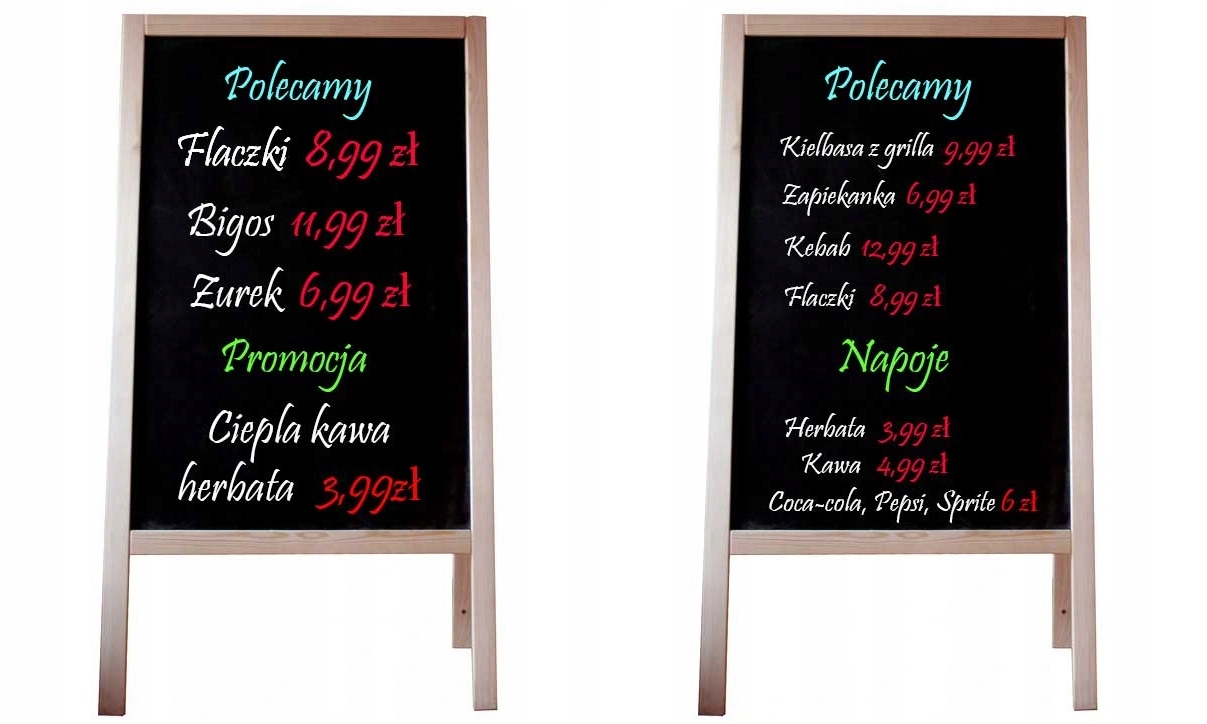 Polecamy
Flaczki 8,99 zł
Bigos 11,99 zł
Zurek 6,99 zł
Promocja
Ciepla kawa
herbata 3,99zł
Polecamy
Kielbasa z grilla 9,99 zł
Zapiekanka 6,99 zł
Kebab 12,99 zł
Flaczki 8,99 zł
Napoje
Herbata 3,99 zł
Kawa 4,99 zł
Coca-cola, Pepsi, Sprite 6 zł